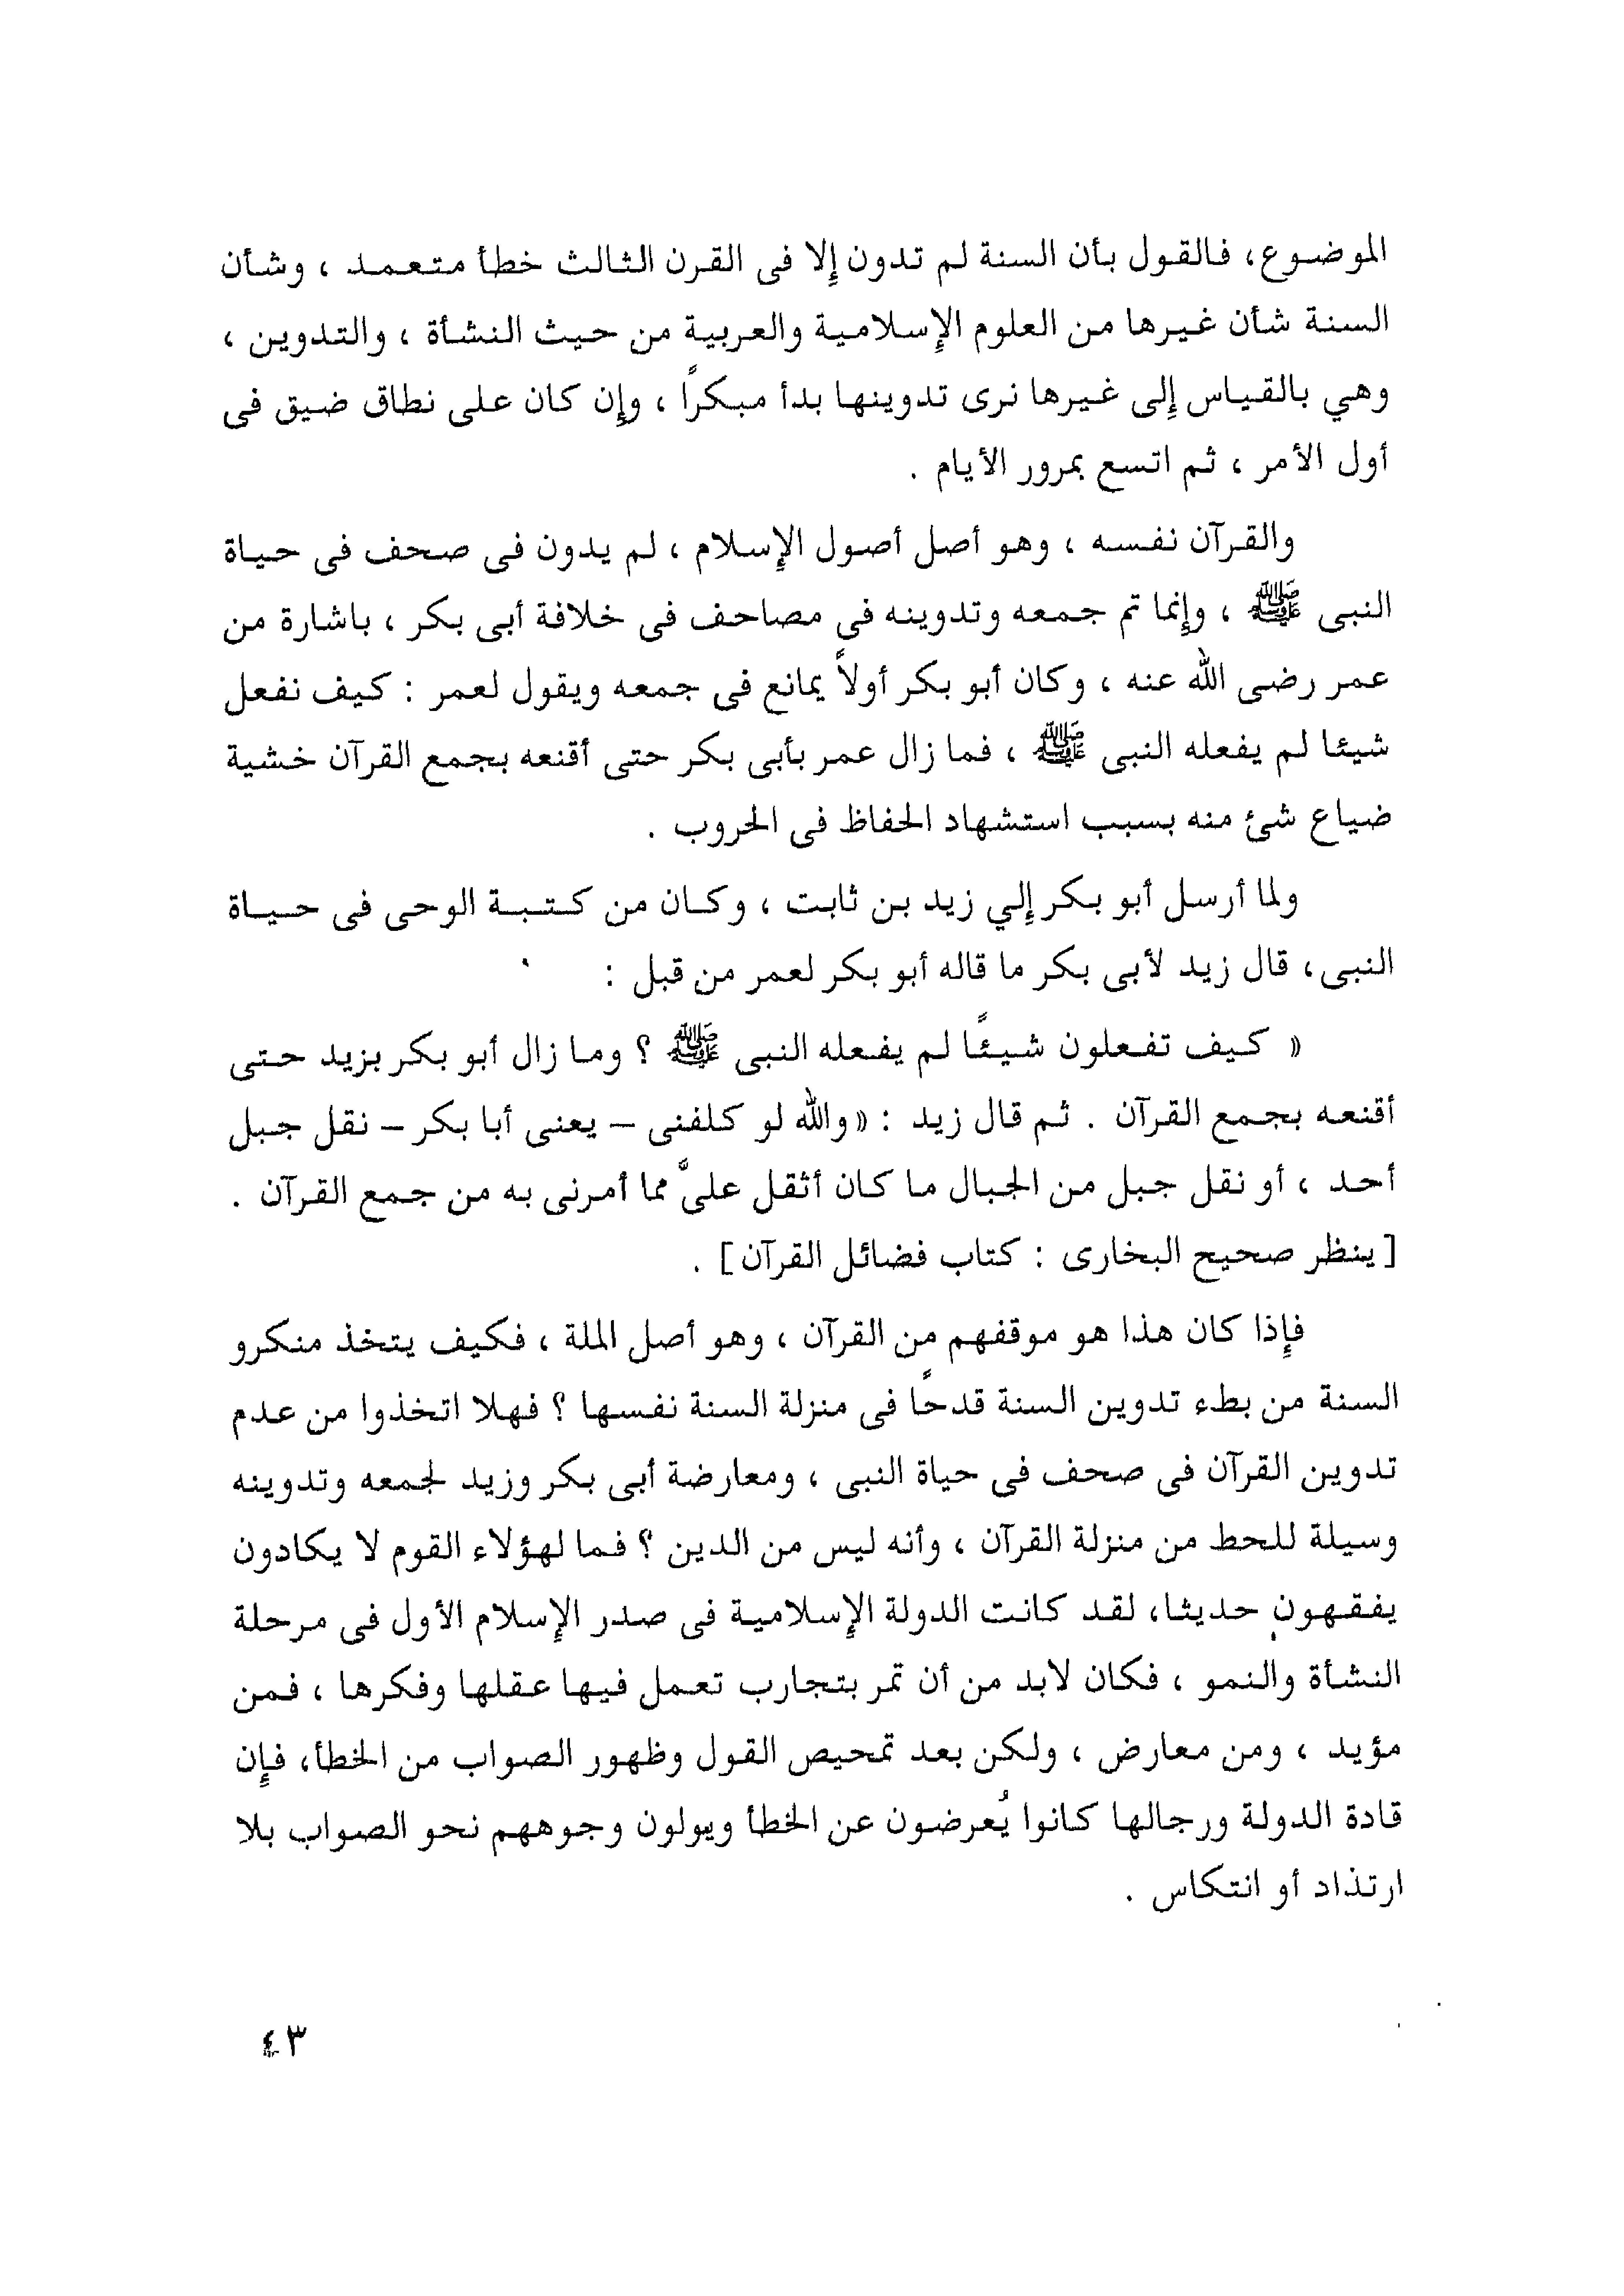 الموضوع، فالقول بأن السنة لم تدون إلا فى القرن الثالث خطأ متعمد ، وشأن
السنة شأن غيرها من العلوم الإسلامية والعربية من حيث النشأة ، والتدوين ،
وهي بالقياس إلى غيرها نرى تدوينها بدأ مبكرًا ، وإن كان على نطاق ضيق فى
أول الأمر ، ثم اتسع بمرور الأيام .
والقرآن نفسه ، وهو أصل أصول الإسلام ، لم يدون فى صحف فى حياة
النبى ﷺ ، وإنما تم جمعه وتدوينه فى مصاحف فى خلافة أبى بكر ، باشارة من
عمر رضى الله عنه ، وكان أبو بكر أولاً يمانع فى جمعه ويقول لعمر : كيف نفعل
شيئا لم يفعله النبى ﷺ ، فما زال عمر بأبى بكر حتى أقنعه بجمع القرآن خشية
ضياع شئ منه بسبب استشهاد الحفاظ فى الحروب .
ولما أرسل أبو بكر إلي زيد بن ثابت ، وكان من كتبة الوحى فى حياة
النبى، قال زيد لأبى بكر ما قاله أبو بكر لعمر من قبل :
« كيف تفعلون شيئًا لم يفعله النبى ﷺ ؟ وما زال أبو بكر بزيد حتى
أقنعه بجمع القرآن . ثم قال زيد : «والله لو كلفنى – يعنى أبا بكر – نقل جبل
أحد ، أو نقل جبل من الجبال ما كان أثقل علىَّ مما أمرنى به من جمع القرآن .
[ينظر صحيح البخارى : كتاب فضائل القرآن] .
فإذا كان هذا هو موقفهم من القرآن ، وهو أصل الملة ، فكيف يتخذ منكرو
السنة من بطء تدوين السنة قدحًا فى منزلة السنة نفسها ؟ فهلا اتخذوا من عدم
تدوين القرآن فى صحف فى حياة النبى ، ومعارضة أبى بكر وزيد لجمعه وتدوينه
وسيلة للحط من منزلة القرآن ، وأنه ليس من الدين ؟ فما لهؤلاء القوم لا يكادون
يفقهون حديثا، لقد كانت الدولة الإسلامية فى صدر الإسلام الأول فى مرحلة
النشأة والنمو ، فكان لابد من أن تمر بتجارب تعمل فيها عقلها وفكرها ، فمن
مؤيد ، ومن معارض ، ولكن بعد تمحيص القول وظهور الصواب من الخطأ، فإن
قادة الدولة ورجالها كانوا يُعرضون عن الخطأ ويولون وجوههم نحو الصواب بلا
ارتذاد أو انتكاس .
٤٣